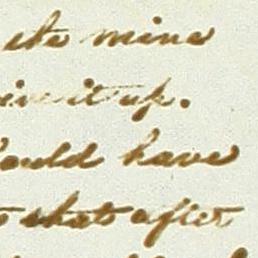 the mine
give it up.
could have
that after